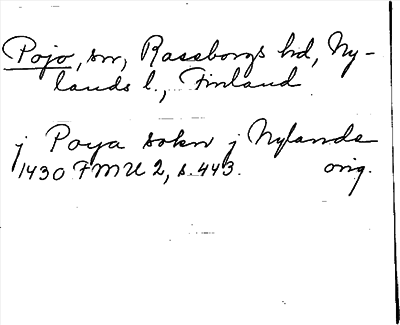 Pojo, sn, Raseborgs hd, Ny-
lands l., Finland
j Poya sokn j Nylande
1430 FMU 2, s. 443. orig.